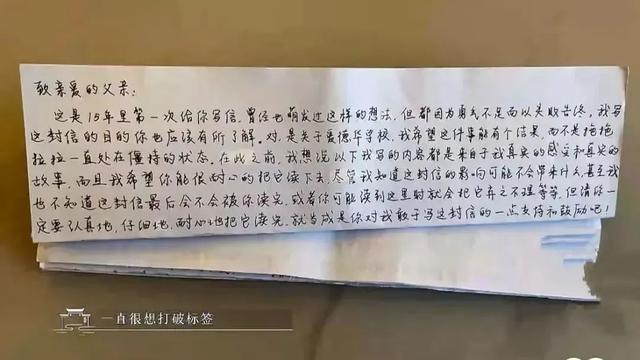 致亲爱的父亲:
这是15年里第一次给你写信,曾经也萌发过这样的想法,但都因为勇气不足而以失败告终。我写
这封信的目的你也应该有所了解。对,是关于爱德华学校,我希望这件事能有个结果,而不是拖拖
拉拉一直处在僵持的状态。在此之前,我想说以下我写的内容都是来自于我真实的感受和真实的
故事,而且我希望你能很耐心的把它读下去,尽管我知道这封信的影响可能不会带来什么,甚至我
也不知道这封信最后会不会被你读完,或者你可能读到这里时就会把它弃之不理等等,但请你一
定要认真地,仔细地,耐心地把它读完,就当成是你对我敢于写这封信的一点支持和鼓励吧!
一直很想打破标签